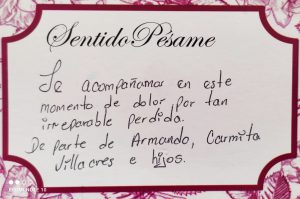 Sentido Pésame
Le acompañamos en este
momento de dolor por tan
irreparable perdida.
De parte de Armando, Carmita
Villacres e hijos.